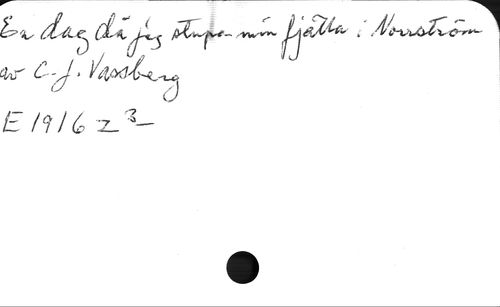 En dag då jag stupa min fjätta i Norrström
av C. J. Vassberg
E 1916 Z 3